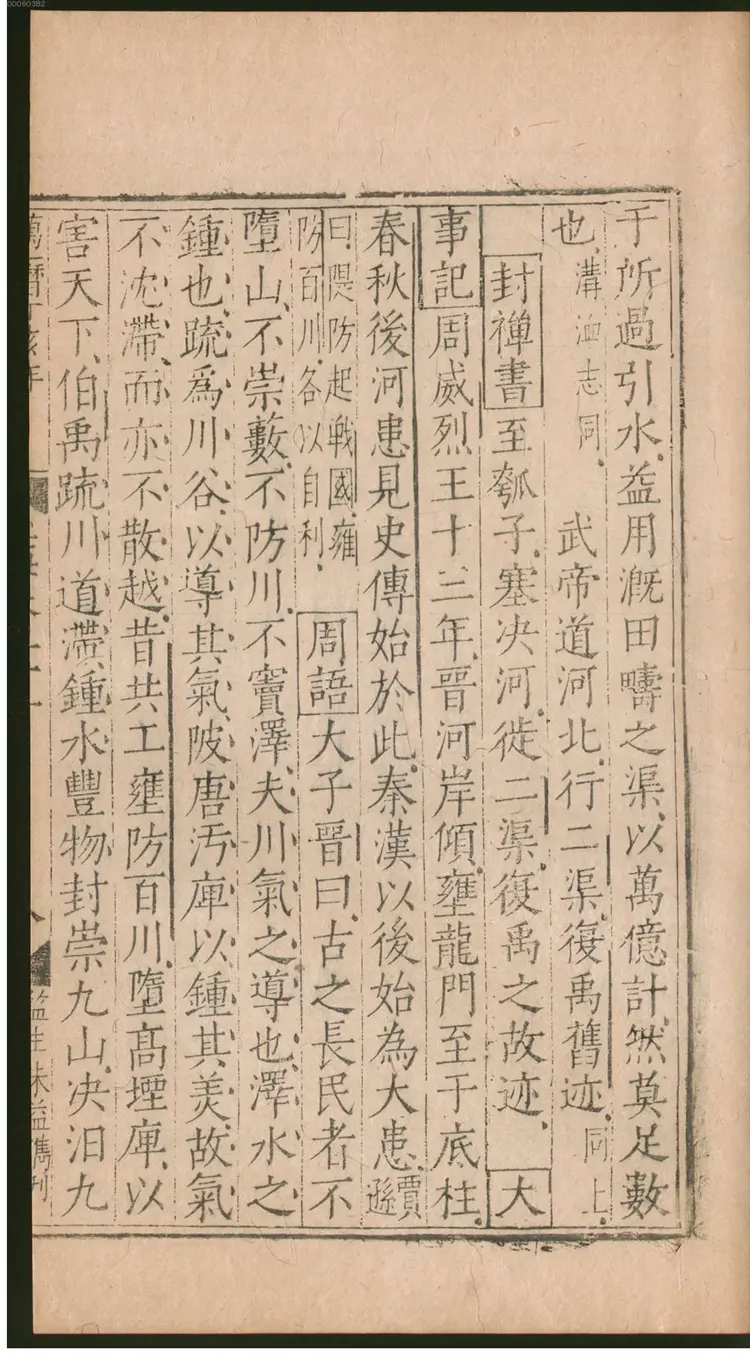 00060382
于所過引水益用溉田疇之渠以萬億計然莫足數
也溝洫志同武帝道河北行二渠復禹舊迹同上
封禪書至瓠子塞决河徙二渠復禹之故迹大
事記周威烈王十三年晉河岸傾壅龍門至于底柱
春秋後河患見史傳始於此秦漢以後始為大患賈遜
曰隄防起戰國雍
防百川各以自利
周語大子晉曰古之長民者不
墮山不崇藪不防川不竇澤夫川氣之導也澤水之
鍾也疏爲川谷以導其氣陂唐汚庳以鍾其羙故氣
不沈滯而亦不散越昔共工壅防百川墮髙堙庳以
害天下伯禹疏川道滯鍾水豐物封崇九山决汨九